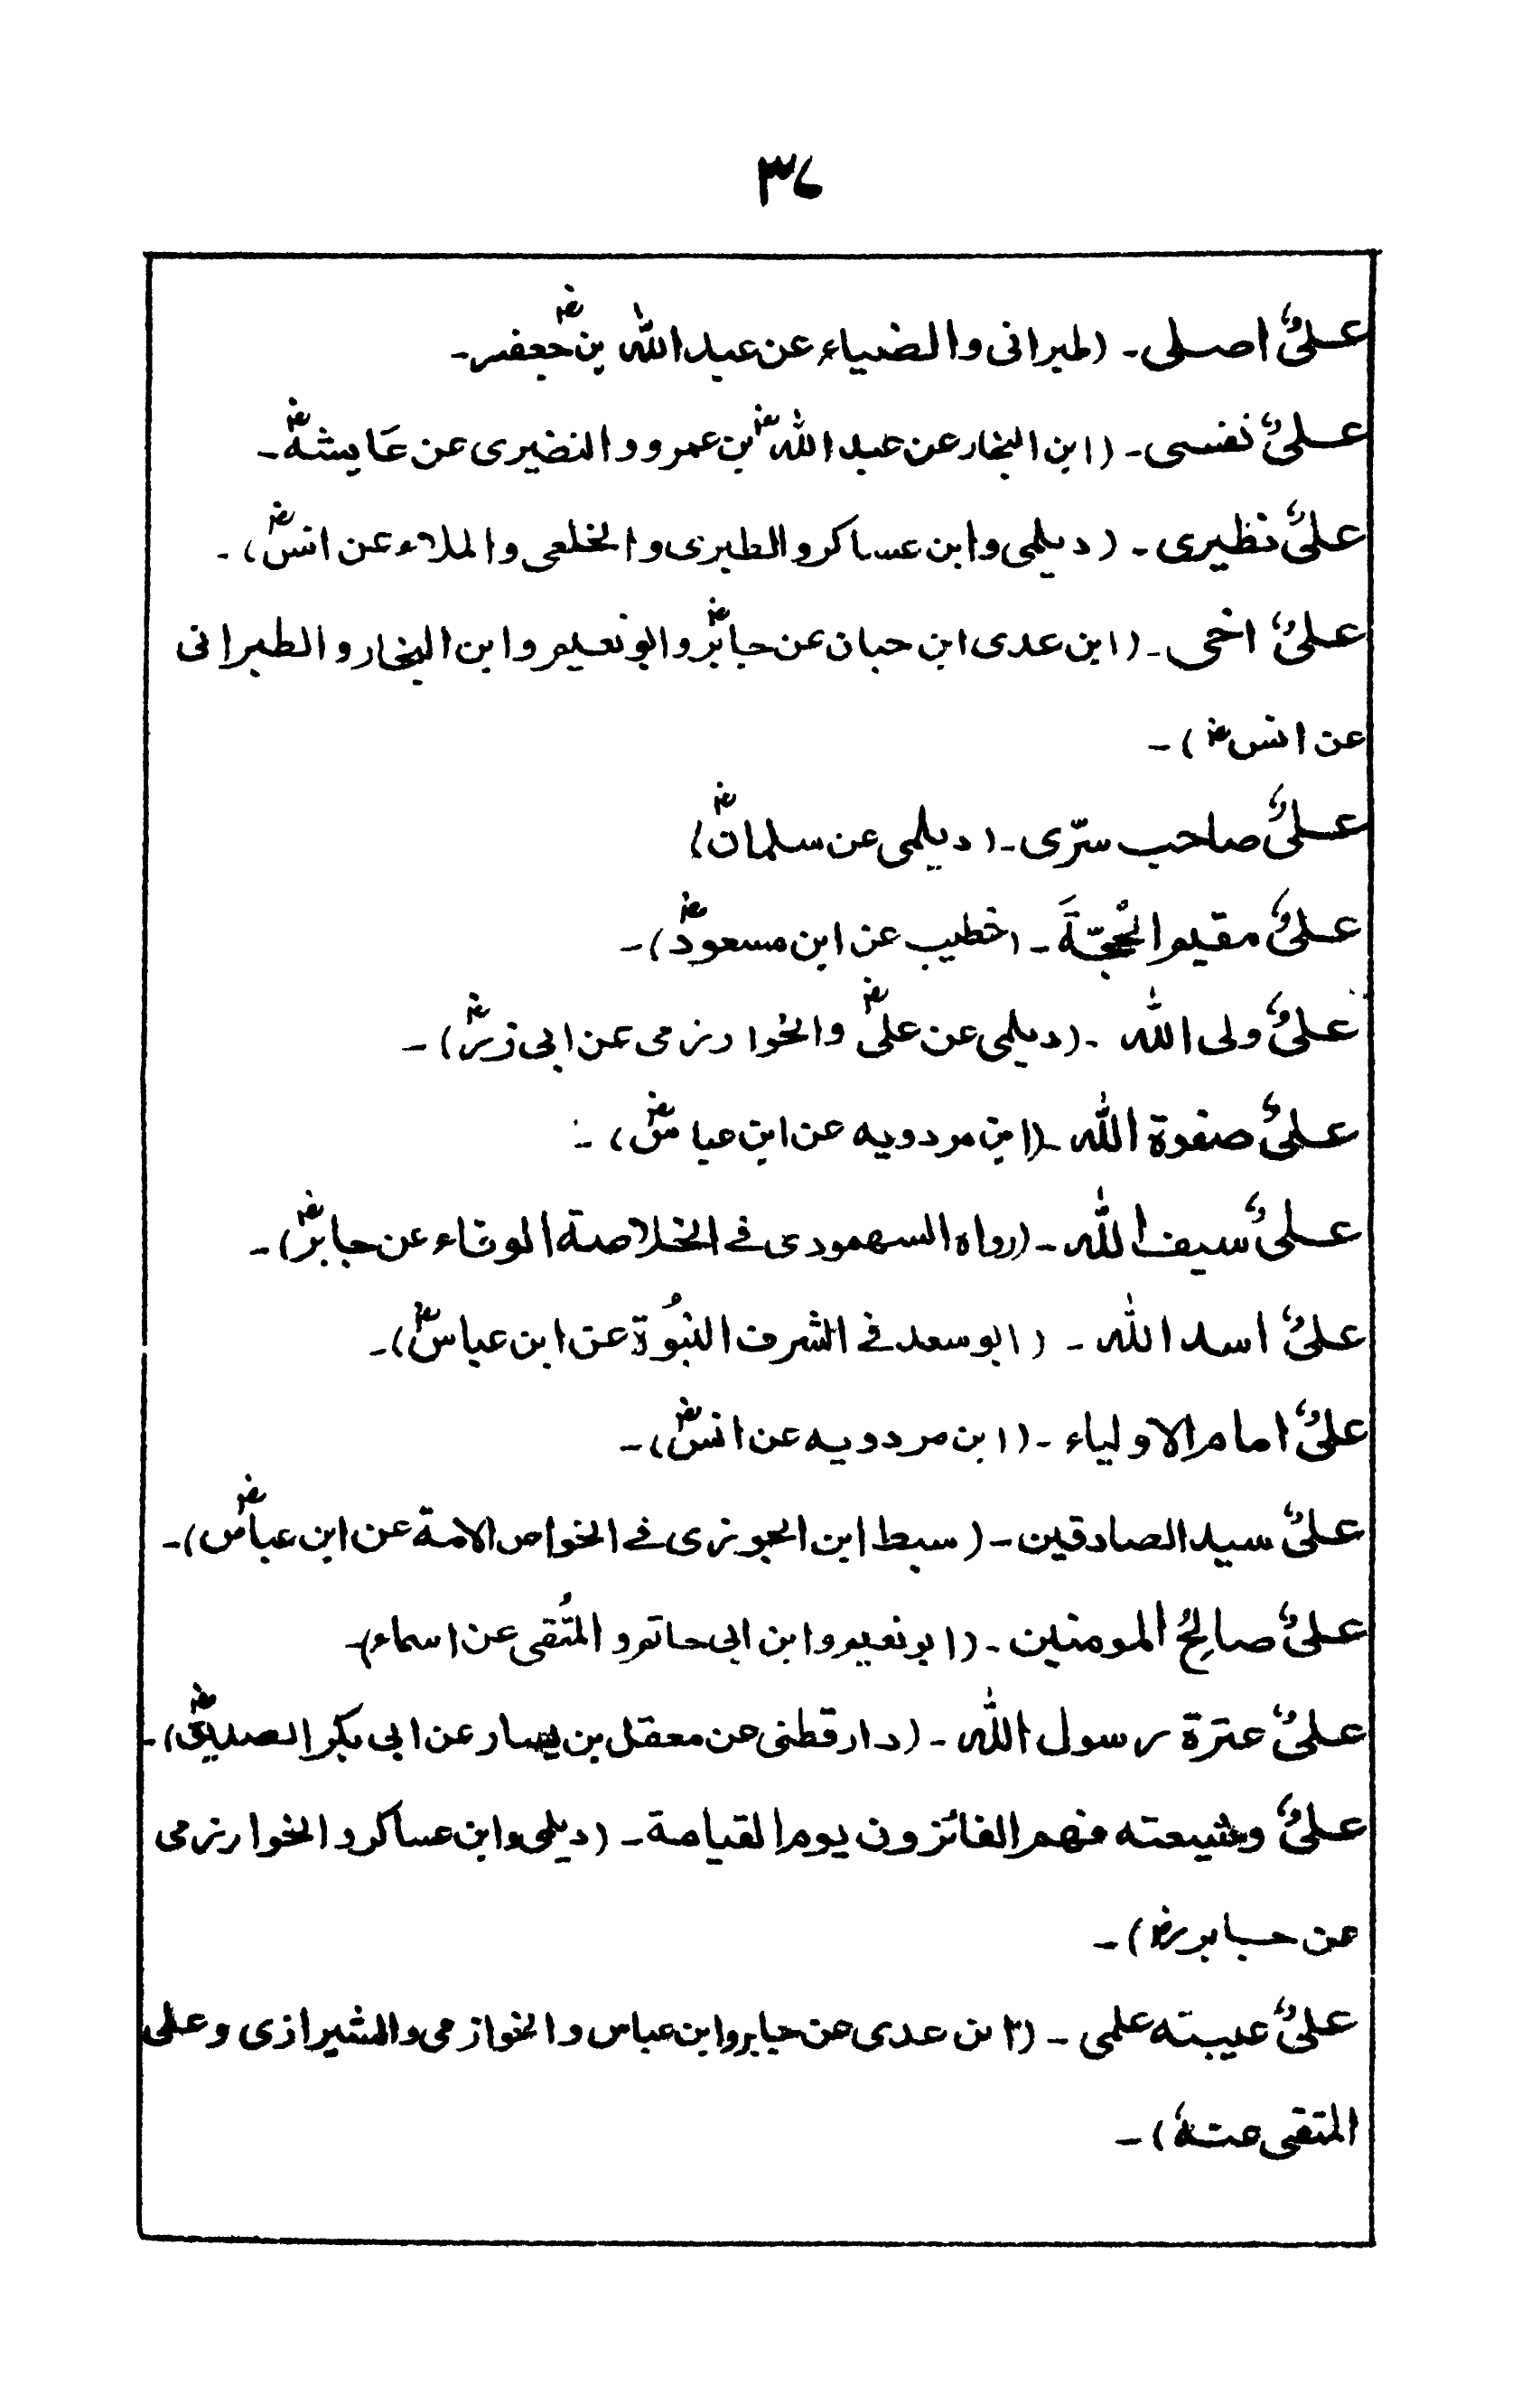 ۳۷
علیؑ اصلی۔ (طبرانی والضیاء عن عبداللہ بن جعفرؓ۔
علیؑ نفسی۔ (ابن النجار عن عبداللہؓ بن عمرو والنضیری عن عَایشہؓ۔
علیؑ نظیری۔ (دیلمی وابن عساکر والطبری والخلعی والملاء عن انسؓ)۔
علیؑ اخی۔ (ابن عدی ابن حبان عن جابرؓ وابو نعیم وابن النجار والطبرانی
عن انسؓ)۔
علیؑ صاحب سرّی۔ (دیلمی عن سلمانؓ)
علیؑ مقیم الْحُجّۃَ۔ (خطیب عن ابن مسعودؓ)۔
علیؑ ولی اللہ ۔ (دیلمی عن علیؓ والخوارزمی عن ابی ذرؓ)۔
علیؑ صفوۃ اللہ ۔ (ابن مردویہ عن ابن عباسؓ)۔
علیؑ سیف اللہ ۔ (رواہ السہمودی فے الخلاصۃ الوفاء عن جابرؓ)۔
علیؑ اسد اللہ ۔ (ابو سعد فے الشرف النبُوۃ عن ابن عباسؓ)۔
علیؑ امام الاولیاء ۔ (ابن مردویہ عن انسؓ)۔
علیؑ سید الصادقین ۔ (سبط ابن الجوزی فے الخواص الامۃ عن ابن عباسؓ)۔
علیؑ صالِحُ المومنین ۔ (ابو نعیم وابن ابی حاتم و المتُقی عن اسماء)۔
علیؑ عترۃ رسول اللہ ۔ (دارقطنی عن معقل بن یسار عن ابی بکر الصدیقؓ)۔
علیؑ وشیعتہ فہم الفائزون یوم القیامۃ ۔ (دیلمی وابن عساکر والخوارزمی
عن جابر رض)۔
علیؑ عیبتہ علمی ۔ (ابن عدی عن جابر وابن عباس والخوازمی والشیرازی وعلی
المتقی عنہؑ)۔